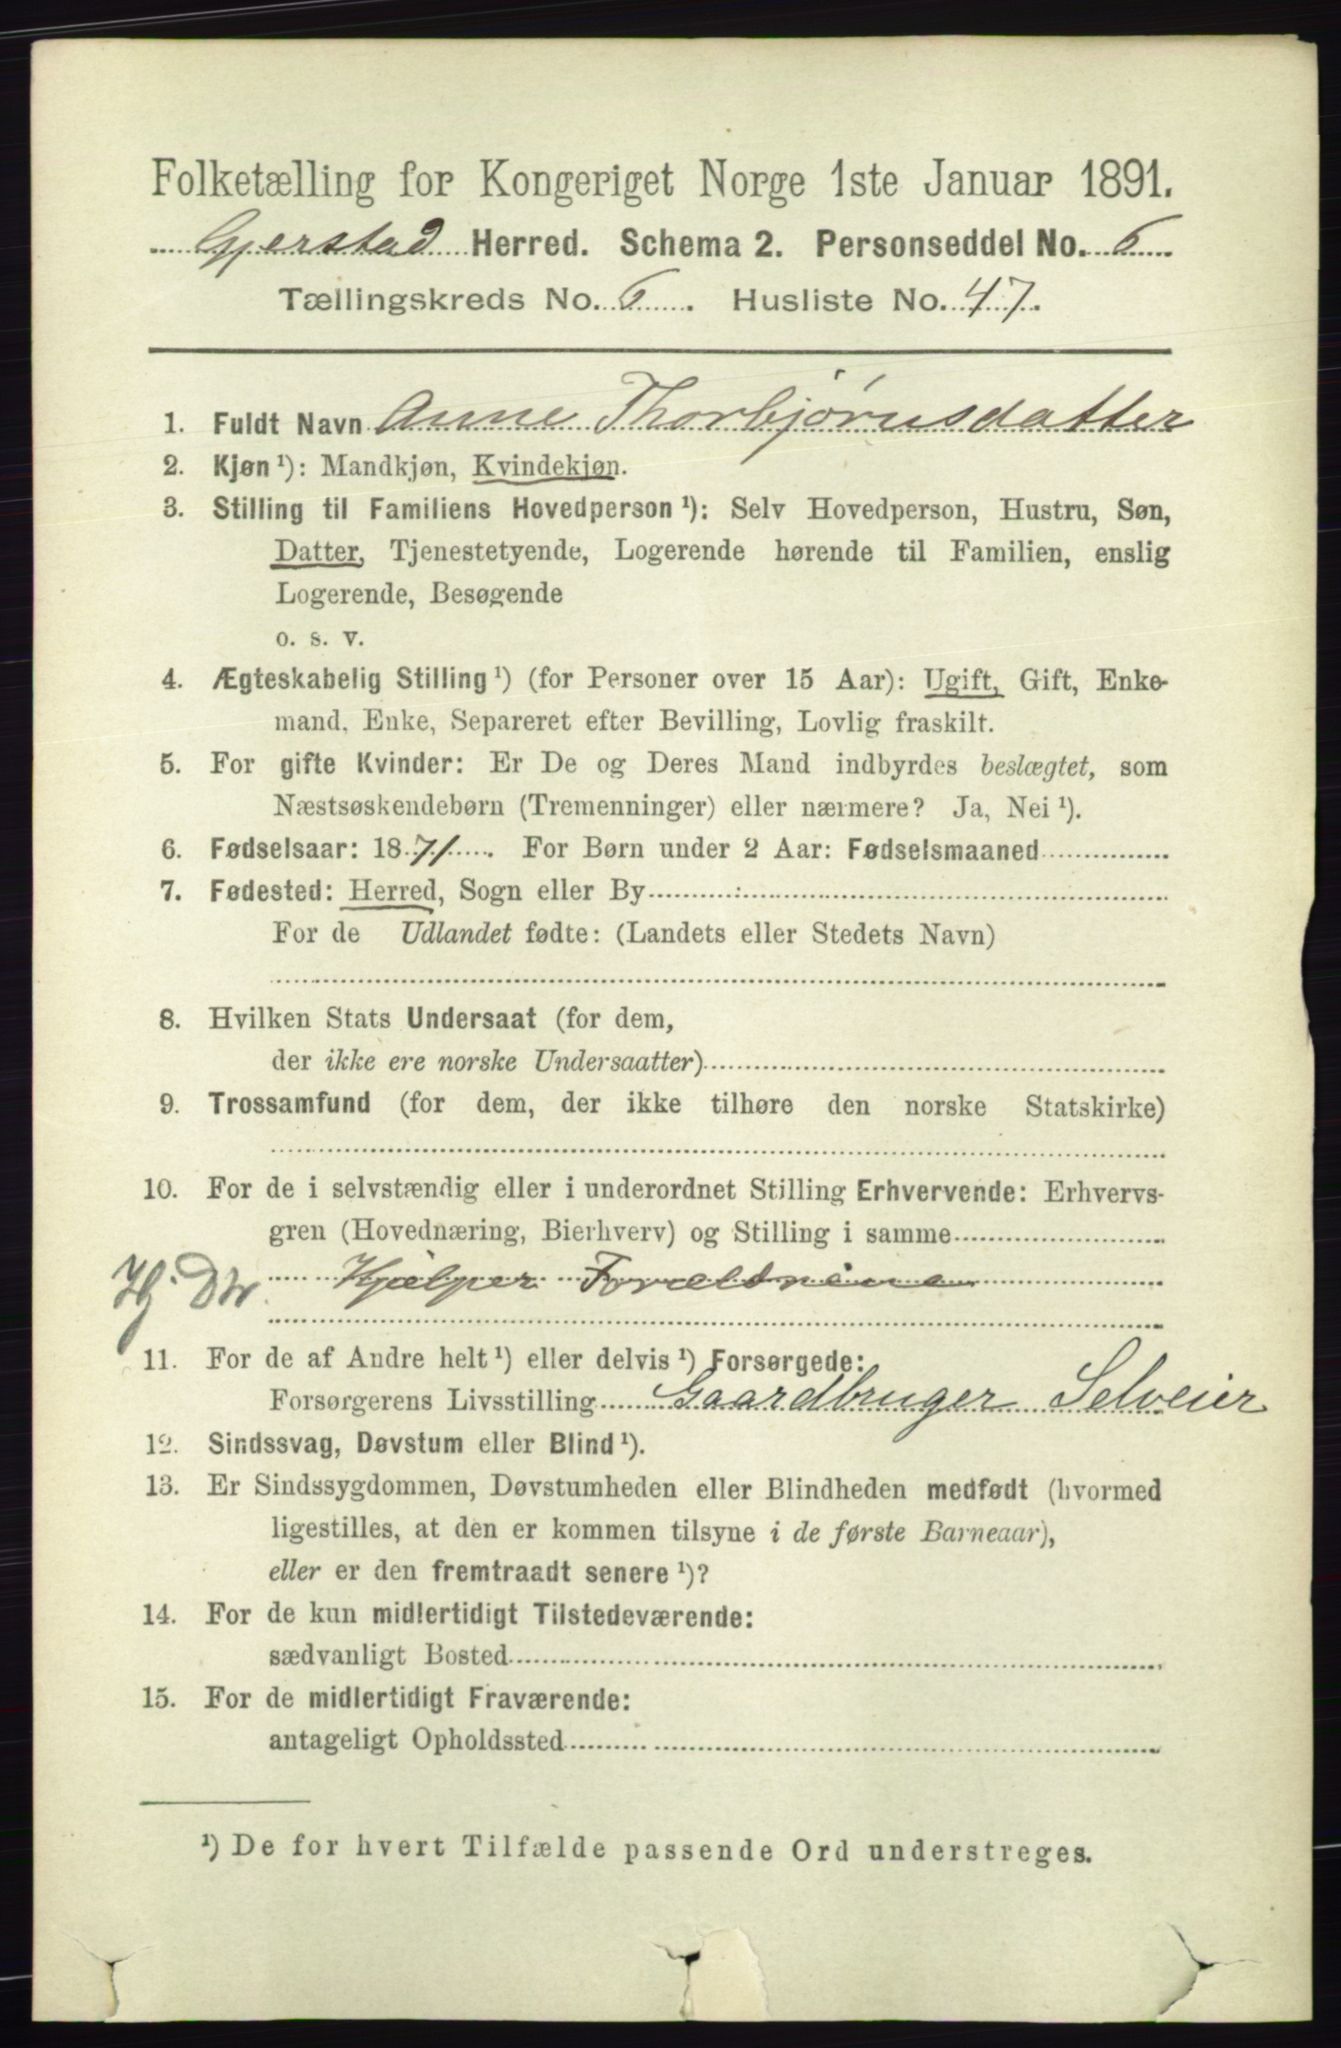 Folketælling for Kongeriget Norge 1ste Januar 1891.
Gjerstad Herred. Schema 2. Personseddel No. 6
Tællingskreds No. 6. Husliste No. 47.
1. Fuldt Navn Anne Thorbjørnsdatter
2. Kjøn ¹): Mandkjøn, Kvindekjøn.
3. Stilling til Familiens Hovedperson ¹): Selv Hovedperson, Hustru, Søn,
Datter, Tjenestetyende, Logerende hørende til Familien, enslig
Logerende, Besøgende
o. s. v.
4. Ægteskabelig Stilling ¹) (for Personer over 15 Aar): Ugift, Gift, Enke-
mand, Enke, Separeret efter Bevilling, Lovlig fraskilt.
5. For gifte Kvinder: Er De og Deres Mand indbyrdes beslægtet, som
Næstsøskendebørn (Tremenninger) eller nærmere? Ja, Nei ¹).
6. Fødselsaar: 1871. For Børn under 2 Aar: Fødselsmaaned
7. Fødested: Herred, Sogn eller By
For de Udlandet fødte: (Landets eller Stedets Navn)
8. Hvilken Stats Undersaat (for dem,
der ikke ere norske Undersaatter)
9. Trossamfund (for dem, der ikke tilhøre den norske Statskirke)
10. For de i selvstændig eller i underordnet Stilling Erhvervende: Erhvervs-
gren (Hovednæring, Bierhverv) og Stilling i samme
Hj. Dtr. Hjælper Forældrene
11. For de af Andre helt ¹) eller delvis ¹) Forsørgede:
Forsørgerens Livsstilling Gaardbruger Selveier
12. Sindssvag, Døvstum eller Blind ¹).
13. Er Sindssygdommen, Døvstumheden eller Blindheden medfødt (hvormed
ligestilles, at den er kommen tilsyne i de første Barneaar),
eller er den fremtraadt senere ¹)?
14. For de kun midlertidigt Tilstedeværende:
sædvanligt Bosted
15. For de midlertidigt Fraværende:
antageligt Opholdssted
¹) De for hvert Tilfælde passende Ord understreges.